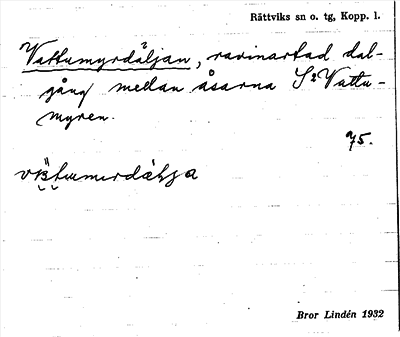 Rättviks sn o. tg, Kopp. l.
Vattumyrdäljan, ravinartad dal-
gång mellan åsarna S Vattu-
myren.
75.
Bror Lindén 1932